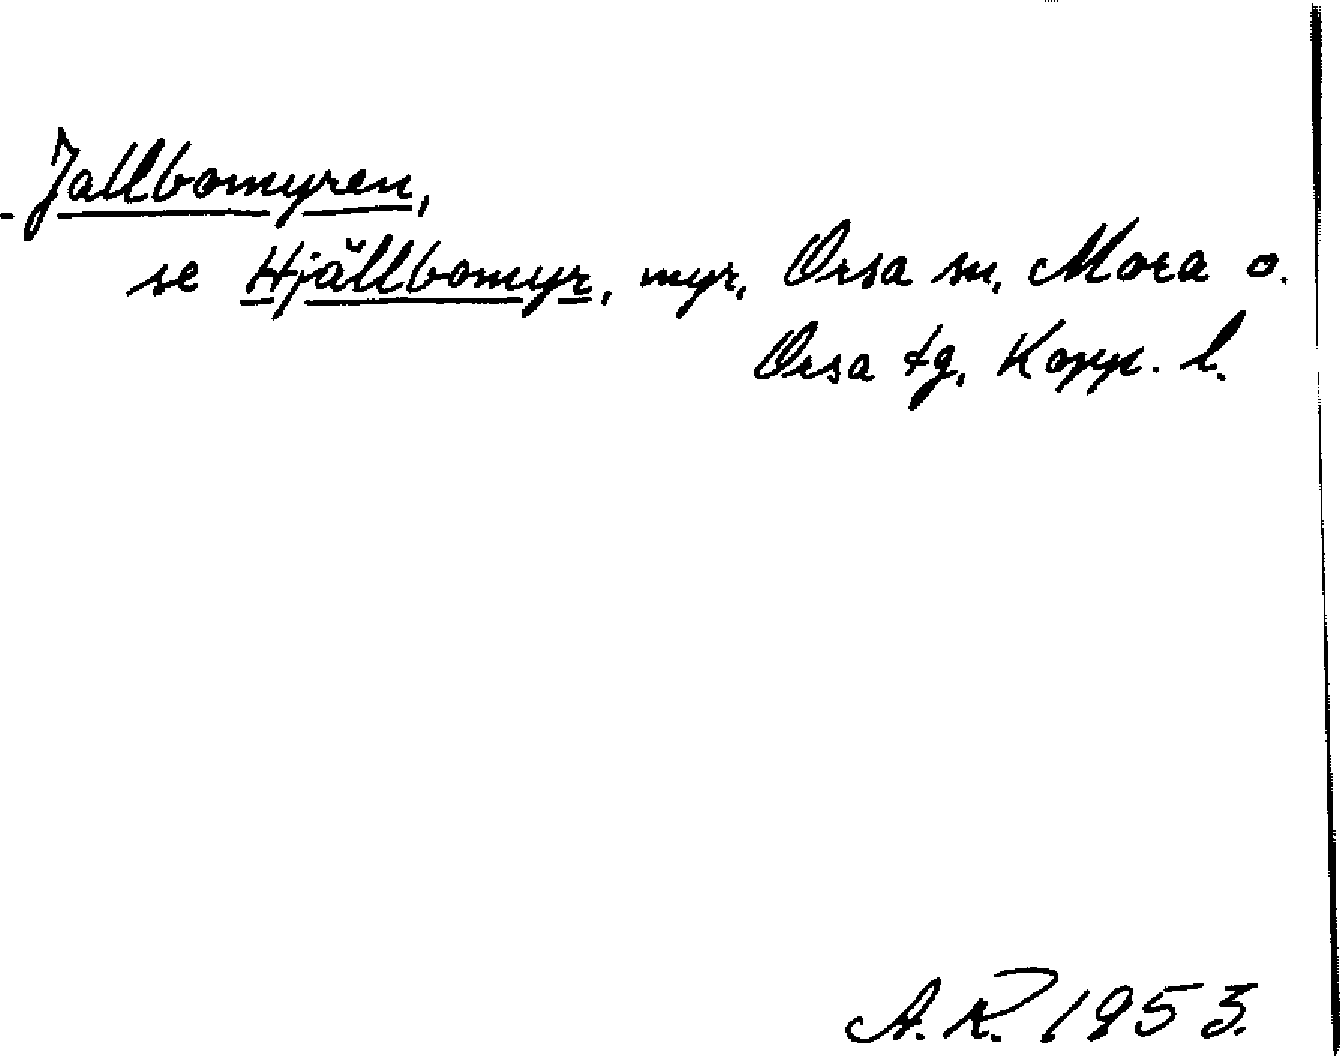 Jallbomyren,
se Hjällbomyr, myr, Orsa sn, Mora o.
Orsa tg, Kopp. l.
A.R. 1953.